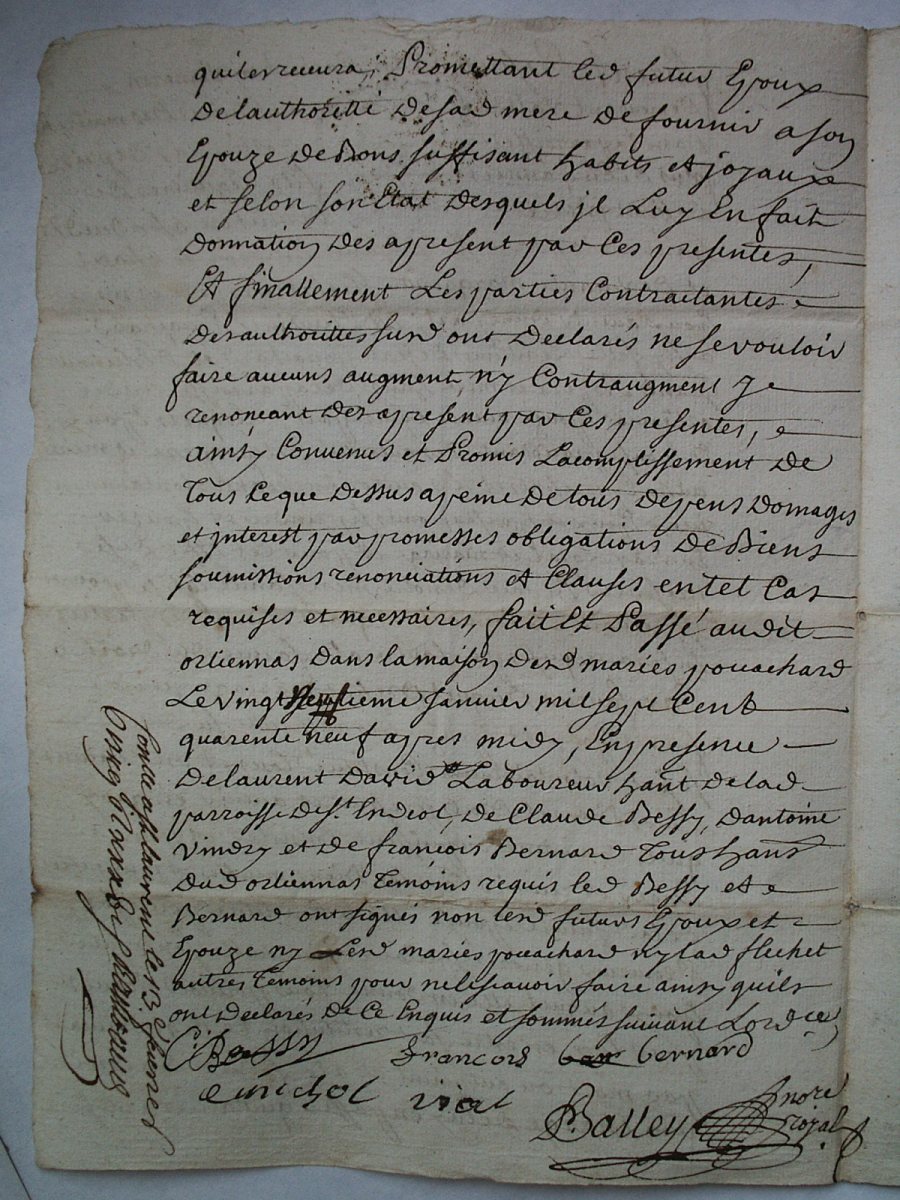 quil en recevra, Promettant led futur Epoux
de lauthoritté de sad mere de fournir a son
Epouze de Bons suffisant habits et joyaux
et selon son Etat desquels jl Luy En fait
donnation des apresent par Ces presentes,
Et finallement Les parties Contractantes
des authorittes susd ont declarés ne se vouloir
faire aucuns augment n'y Contraugment y
renonceant des apresent par Ces presentes,
ainsy Convenus et Promis Lacomplissement de
Tous Ce que dessus a peine de tous depens domages
et interest par promesses obligations de Biens
soumissions renonciations et Clauses en tel Cas
requises et necessaires, fait Et Passé audit
orliennas dans la maison desd mariés pouachard
Le vingt septieme janvier mil sept Cent
quarente neuf apres midy, En presence
de laurent david Laboureur hant de lad
parroisse de st. Andeol, de Claude Bessy, dantoine
Vindry et de francois Bernard Tous hans
dud orliennas Temoins requis led Bessy et
Bernard ont signés non lesd futurs Epoux et
Epouze ny Lesd mariés pouachard ny lad flechet
autres Temoins pour ne le scavoir faire ainsy quils
ont declarés de Ce Enquis et sommés suivant Lordce,
C Bessy francois bernard
Balley nore
royal
Conlle a st laurent le 13e fevrier